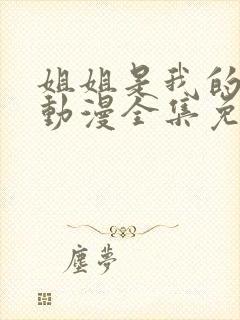 姐姐是我的
動漫全集免
塵夢